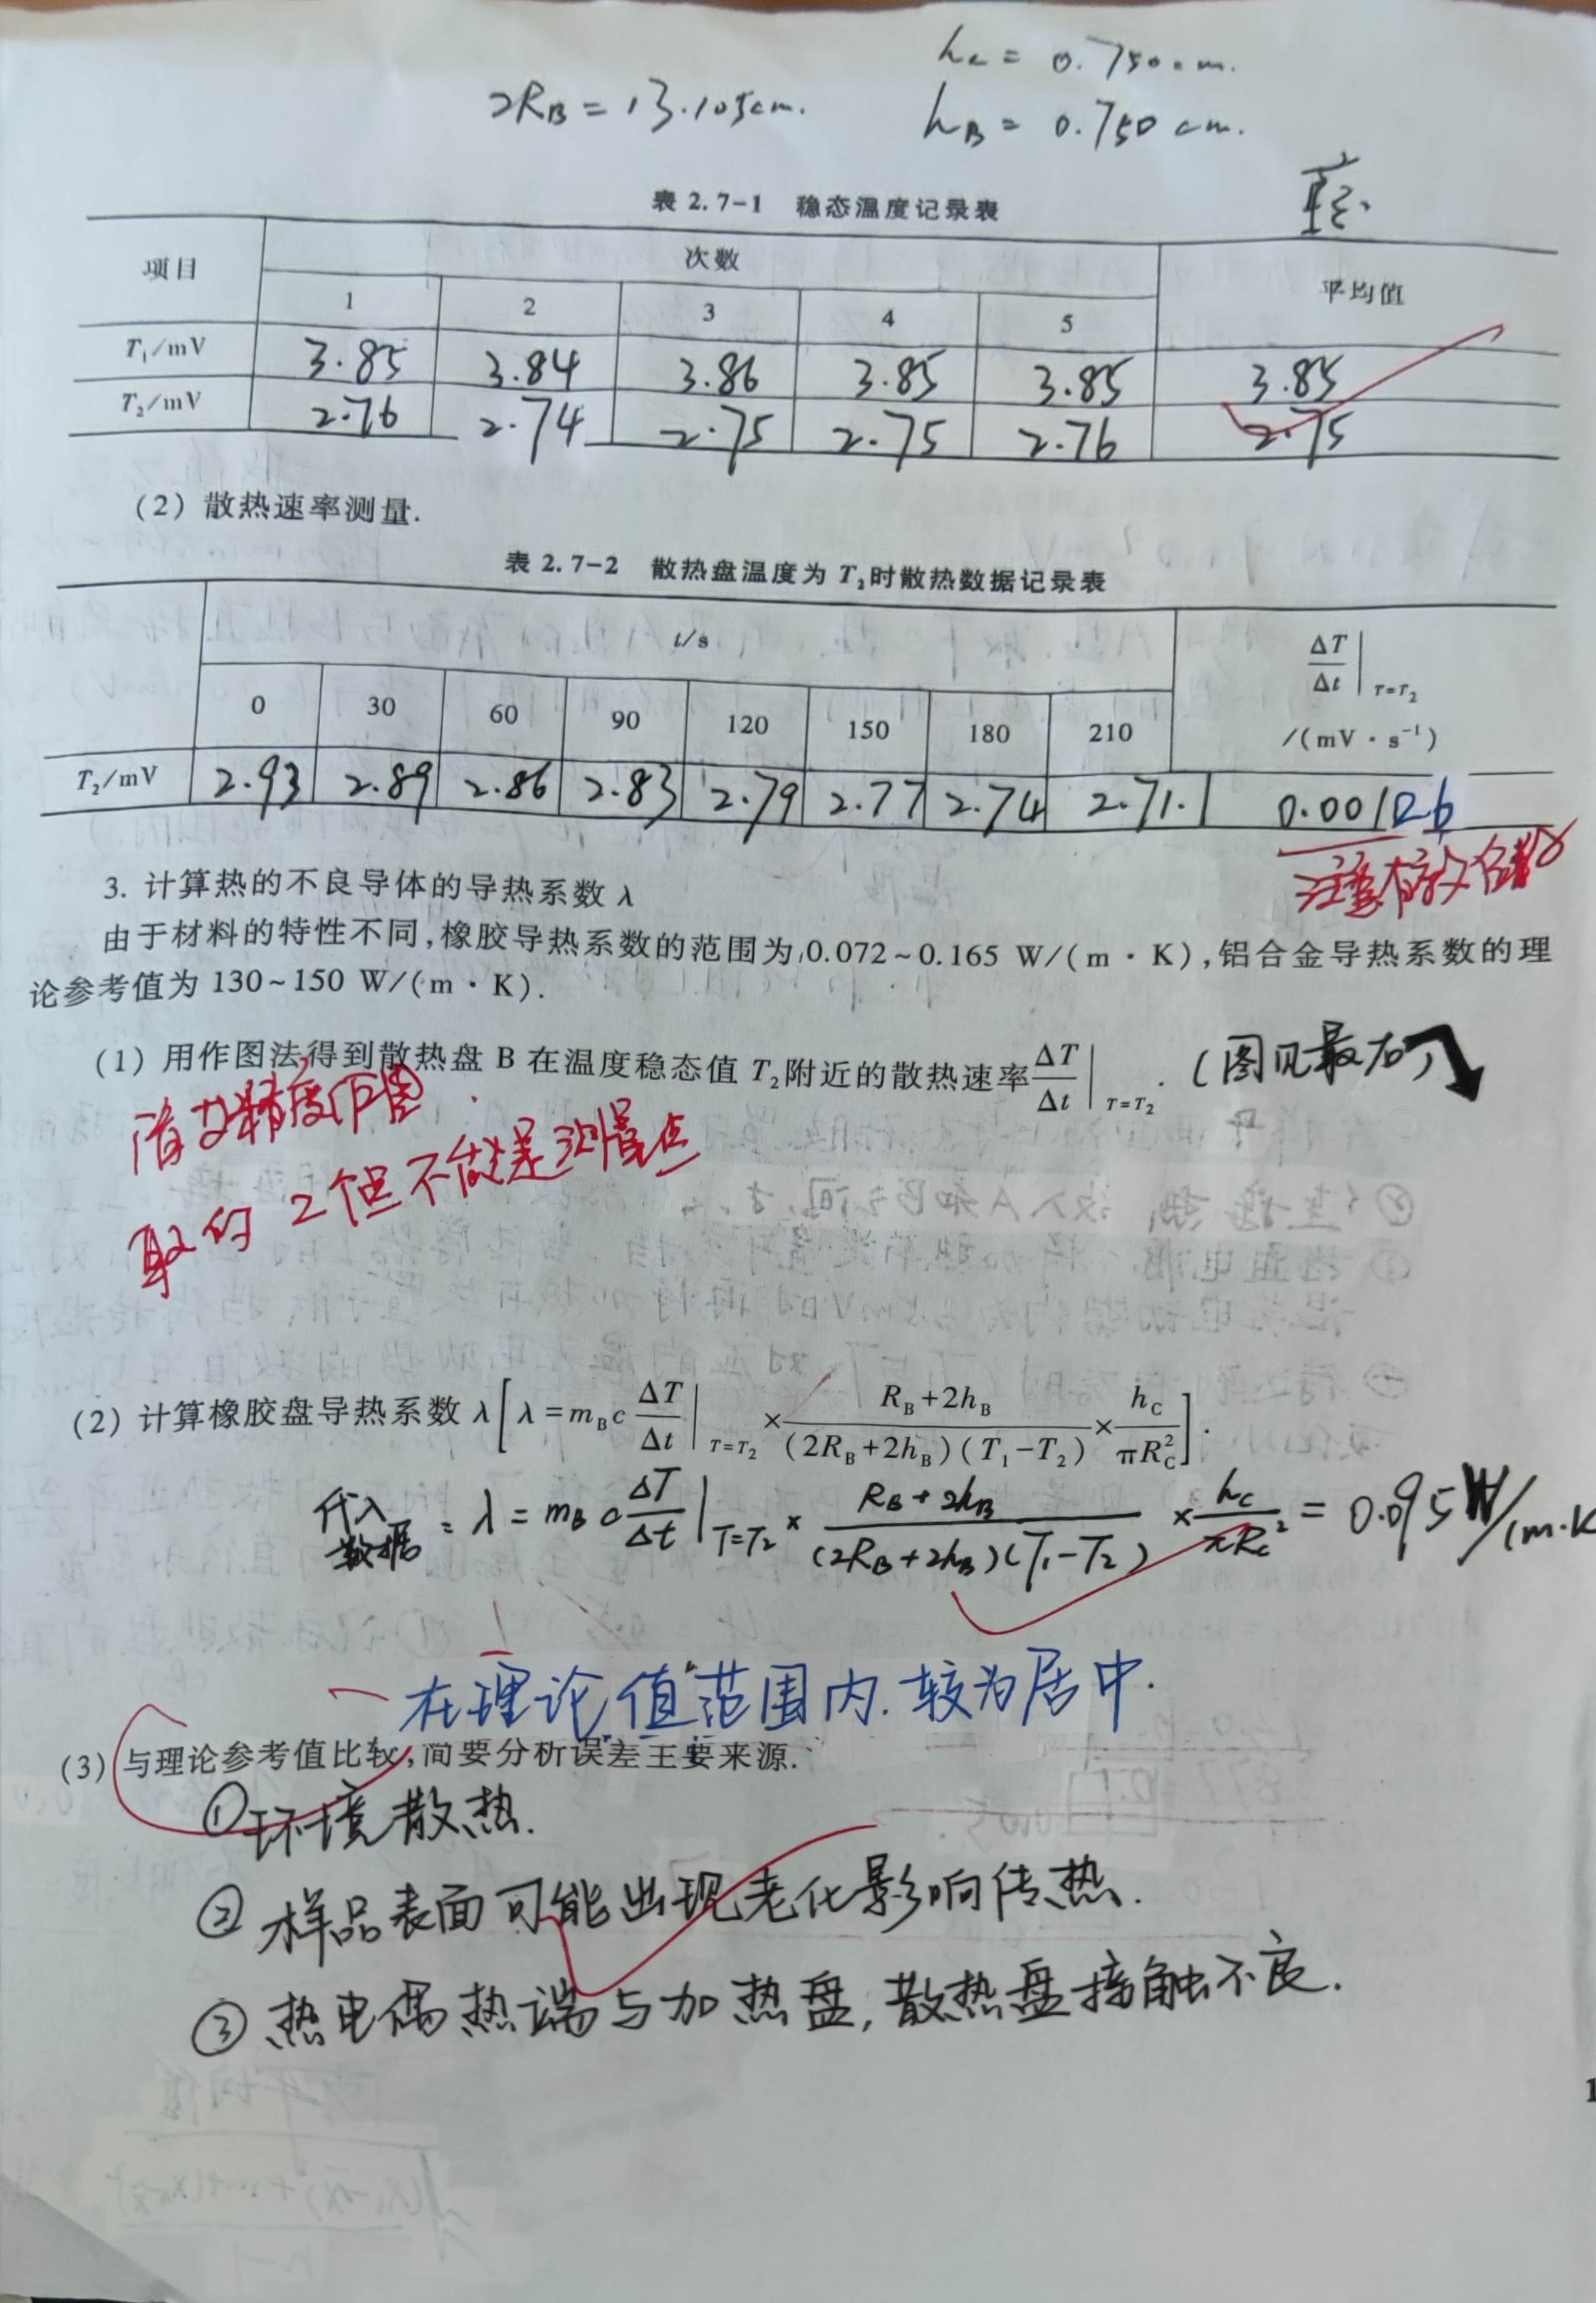 hc = 0.750cm.
2RB = 13.105cm.
hB = 0.750 cm.
表 2.7-1 稳态温度记录表
项目 次数 平均值
1 2 3 4 5
T₁/mV 3.85 3.84 3.86 3.85 3.85 3.85
T₂/mV 2.76 2.74 2.75 2.75 2.76 2.75
(2) 散热速率测量.
表 2.7-2 散热盘温度为 T₂时散热数据记录表
t/s ΔT/Δt|T=T₂ /(mV·s⁻¹)
0 30 60 90 120 150 180 210
T₂/mV 2.93 2.89 2.86 2.83 2.79 2.77 2.74 2.71.
注意有效位数
3. 计算热的不良导体的导热系数 λ
由于材料的特性不同,橡胶导热系数的范围为 0.072~0.165 W/(m·K),铝合金导热系数的理
论参考值为 130~150 W/(m·K).
(1) 用作图法得到散热盘 B 在温度稳态值 T₂附近的散热速率ΔT/Δt|T=T₂. (图见最右)
精度作图
取的 2个但不能是测量点
(2) 计算橡胶盘导热系数 λ[λ=mBc ΔT/Δt|T=T₂ × (RB+2hB)/((2RB+2hB)(T₁-T₂)) × hC/(πRC²)].
代入数据: λ = mB c ΔT/Δt|T=T₂ × (RB+2hB)/((2RB+2hB)(T₁-T₂)) × hc/(πRc²) = 0.095W/(m·K
在理论值范围内.较为居中.
(3) 与理论参考值比较,简要分析误差主要来源.
①环境散热.
②样品表面可能出现老化影响传热.
③热电偶热端与加热盘,散热盘接触不良.
1